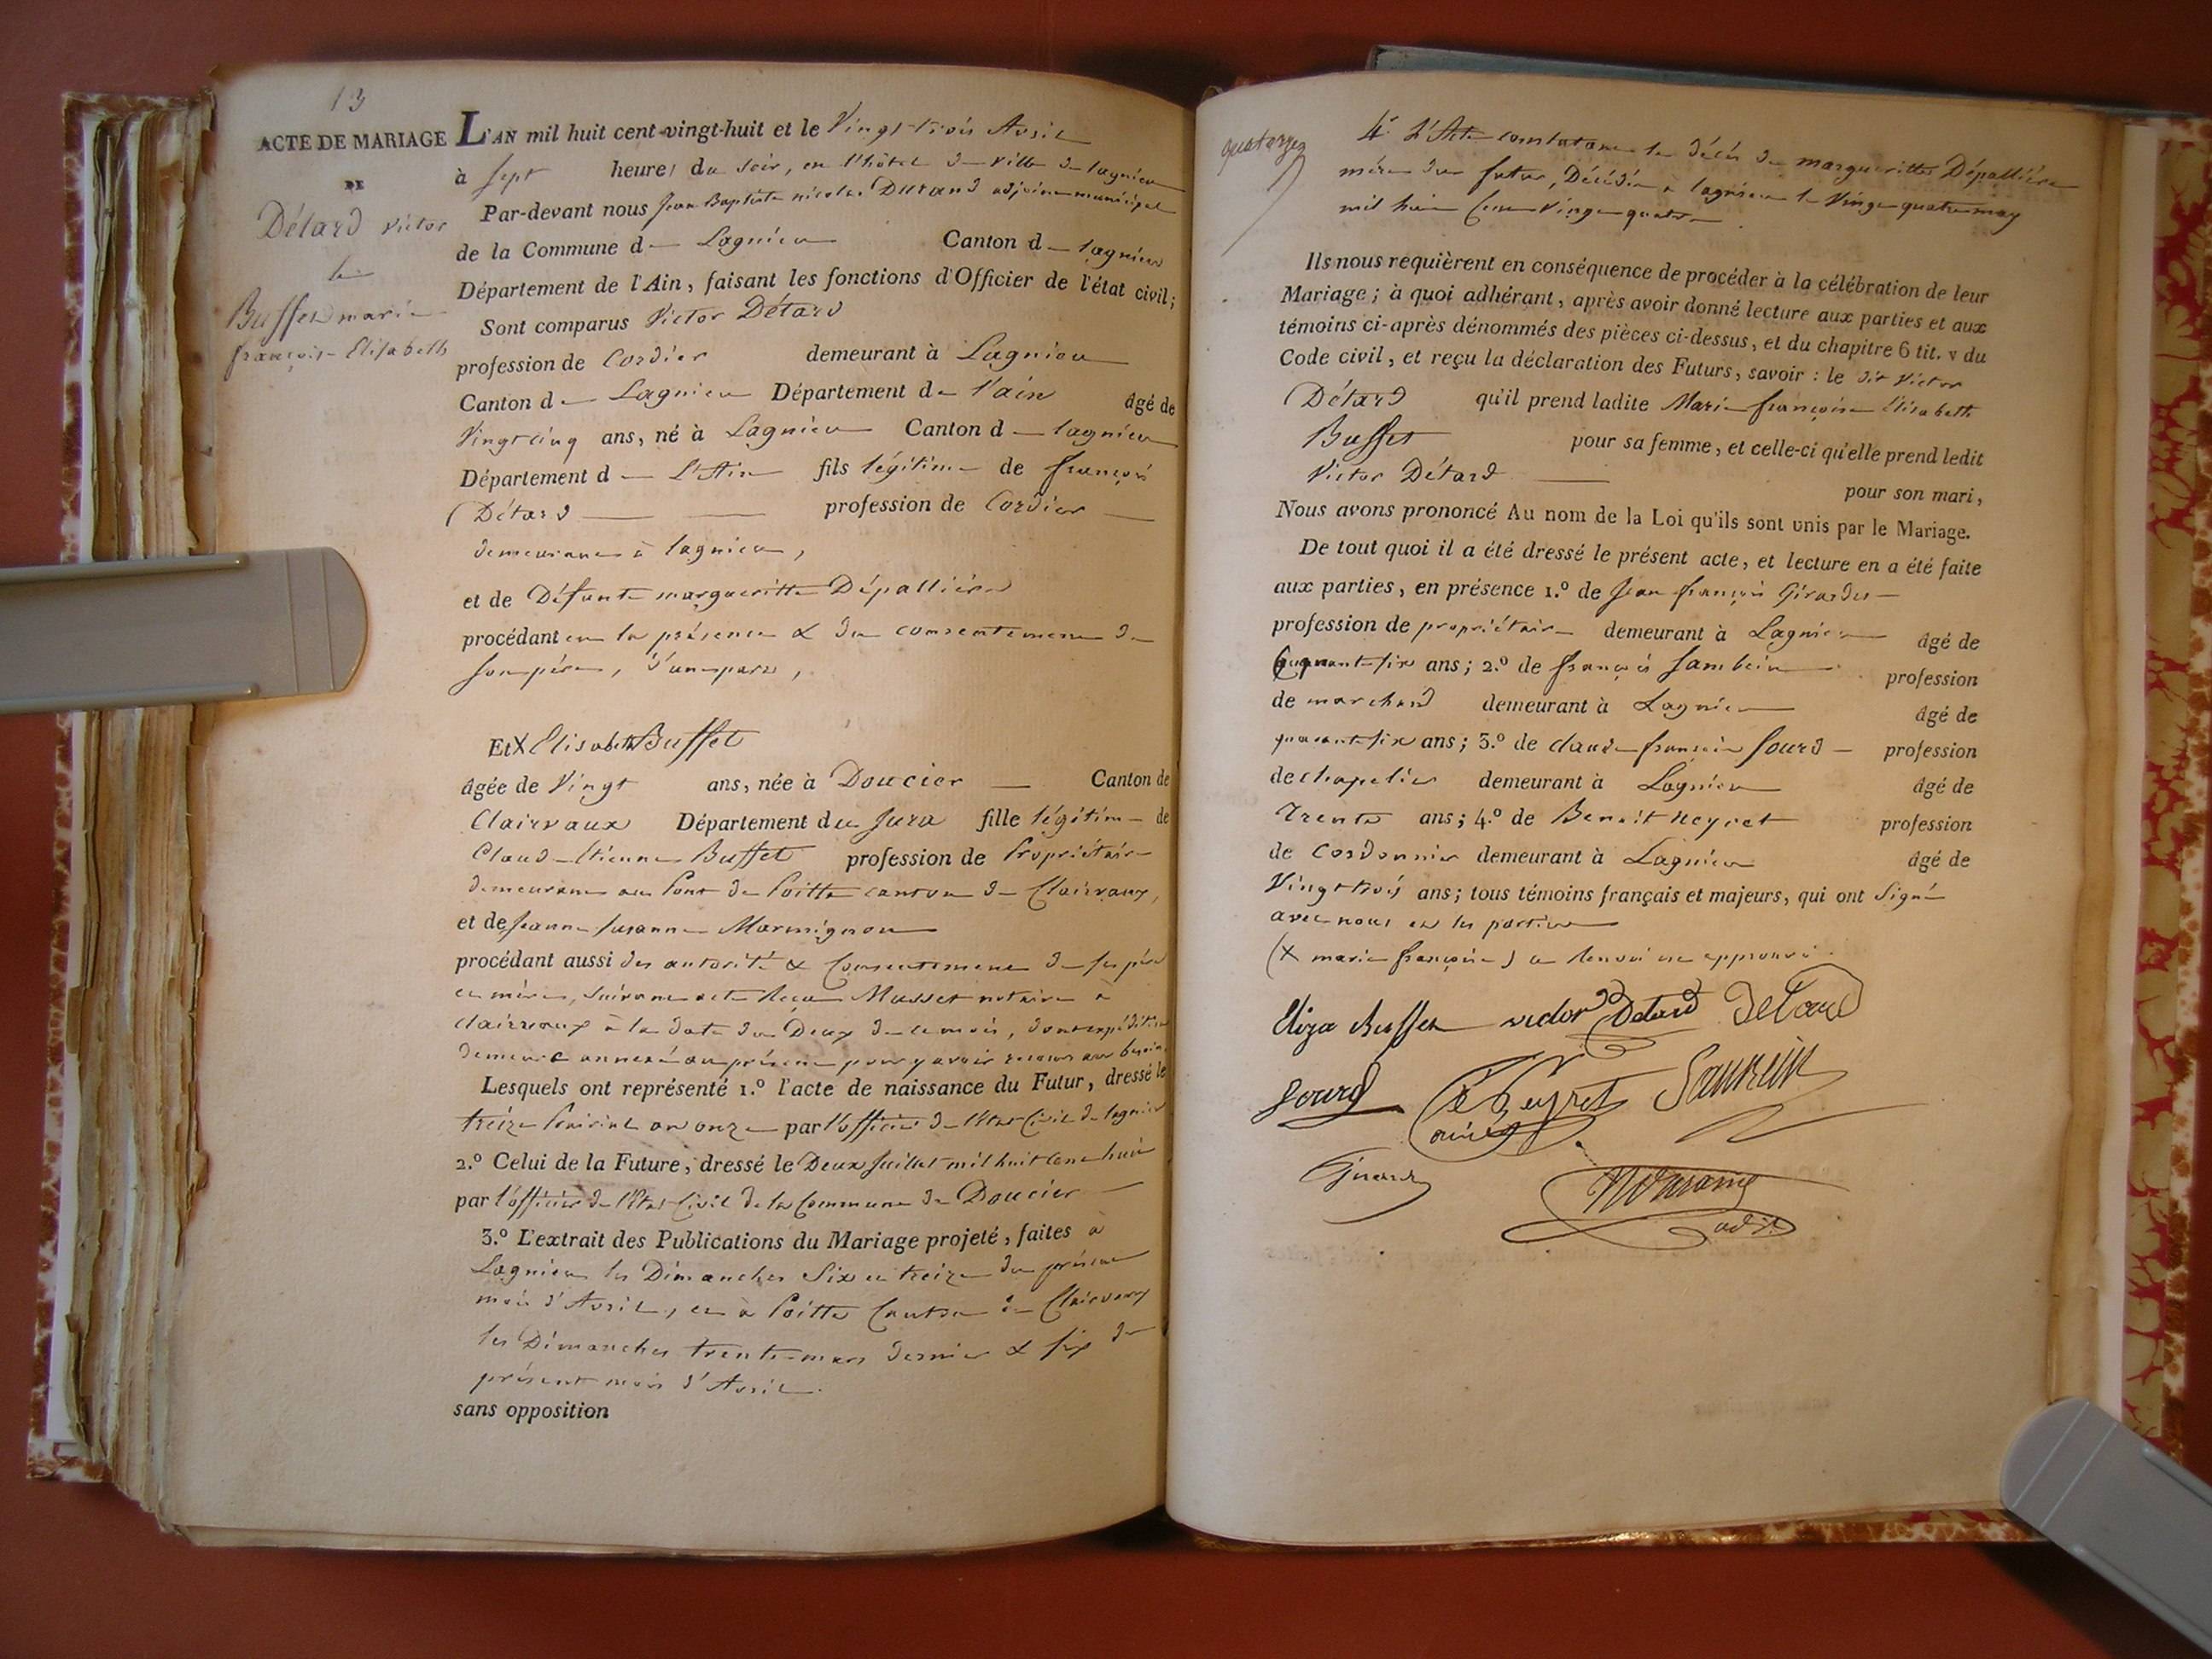 13
ACTE DE MARIAGE
DE
Détard Victor
&
Buffet marie
françoise Elisabeth
L'AN mil huit cent-vingt-huit et le Vingt-trois Avril
à sept heures du soir, en l'hôtel de ville de lagnieu
Par-devant nous Jean Baptiste nicolas Durand adjoint municipal
de la Commune de Lagnieu Canton de lagnieu
Département de l'Ain, faisant les fonctions d'Officier de l'état civil;
Sont comparus Victor Détard
profession de Cordier demeurant à Lagnieu
Canton de Lagnieu Département de l'ain âgé de
Vingt cinq ans, né à Lagnieu Canton de lagnieu
Département de L'Ain fils légitime de françois
Détard profession de Cordier
demeurant à lagnieu,
et de Défunte margueritte Dépallière
procédant en la présence & du consentement de
son père, d'une part,
Et X Elisabeth Buffet
âgée de Vingt ans, née à Doucier Canton de
Clairvaux Département du Jura fille légitime de
Claude Etienne Buffet profession de Propriétaire
demeurant au Pont de Poitte canton de Clairvaux,
et de Jeanne Susanne Marmignon
procédant aussi des autorité & Consentement de ses père
et mère, suivant acte reçu Musset notaire à
Clairvaux à la date du Deux de ce mois, dont expédition
demeure annexé au présent pour y avoir recours au besoin.
Lesquels ont représenté 1.º l'acte de naissance du Futur, dressé le
treize Prairial an onze par l'officier de l'état Civil de lagnieu
2.º Celui de la Future, dressé le Deux Juillet mil huit Cent huit
par l'officier de l'état Civil de la Commune de Doucier
3.º L'extrait des Publications du Mariage projeté, faites à
Lagnieu les Dimanches Six et treize du présent
mois d'Avril, et à Poitte Canton de Clairvaux
les Dimanches trente mars dernier & six du
présent mois d'Avril.
sans opposition
quatorze
4.º L'Acte constatant le décès de margueritte Dépallière
mère du futur, Décédée à lagnieu le Vingt quatre may
mil huit Cent Vingt quatre
Ils nous requièrent en conséquence de procéder à la célébration de leur
Mariage; à quoi adhérant, après avoir donné lecture aux parties et aux
témoins ci-après dénommés des pièces ci-dessus, et du chapitre 6 tit. v du
Code civil, et reçu la déclaration des Futurs, savoir : le dit Victor
Détard qu'il prend ladite Marie françoise Elisabeth
Buffet pour sa femme, et celle-ci qu'elle prend ledit
Victor Détard pour son mari,
Nous avons prononcé Au nom de la Loi qu'ils sont unis par le Mariage.
De tout quoi il a été dressé le présent acte, et lecture en a été faite
aux parties, en présence 1.º de Jean françois Girardet
profession de propriétaire demeurant à Lagnieu âgé de
ans; 2.º de françois profession
de marchand demeurant à Lagnieu âgé de
quarante six ans; 3.º de Claude françois Sourd profession
de chapelier demeurant à Lagnieu âgé de
Trente ans; 4.º de Benoit Neyret profession
de Cordonnier demeurant à Lagnieu âgé de
Vingt trois ans; tous témoins français et majeurs, qui ont Signé
avec nous et les parties
(X marie françoise) ce renvoi est approuvé.
Eliza Buffet victor Detard Detard
Sourd Be Neyret
ainé
Girardet NDurand
adj.